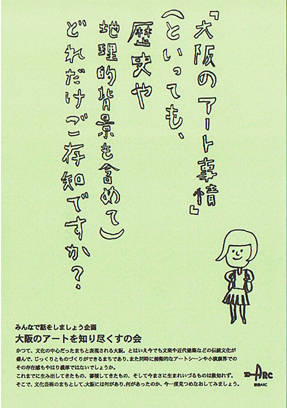 「大阪のアート事情」
(といっても、
歴史や
地理的背景も含めて)
どれだけご存知ですか?
みんなで話をしましょう企画
大阪のアートを知り尽くすの会
かつて、文化の中心だったまちと表現される大阪。とはいえ今でも文楽や近代建築などの伝統文化が
盛んで、じっくりとものづくりができるまちであり、また同時に前衛的なアートシーンや小演劇界で
その存在感もやはり濃厚ではないでしょうか。
これまでに生み出してきたもの、蓄積してきたもの、そして今まさに生まれいづるものは数知れず。
そこで、文化芸術のまちとして、大阪には何があり、何があったのか、今一度見つめなおしてみましょう。
ARC